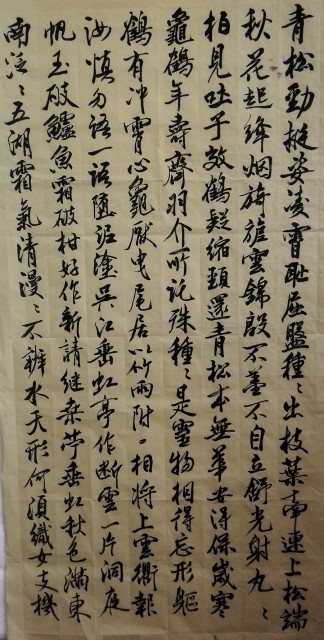 青松勁挺姿凌霄恥屈盤種〻出枝葉牽連上松端
秋花起絳烟旖旎雲錦殷不羞不自立舒光射丸〻
柏見吐子效鶴疑縮頸還青松本無華安得保歲寒
龜鶴年壽齊羽介所託殊種〻是靈物相得忘形軀
鶴有沖霄心龜厭曳尾居以竹兩附口相將上雲衢報
汝慎勿語一語墮泥塗吳江垂虹亭作斷雲一片洞庭
帆玉破鱸魚霜破柑好作新詩繼桑苧垂虹秋色滿東
南泛〻五湖霜氣清漫〻不辨水天形何須織女支機